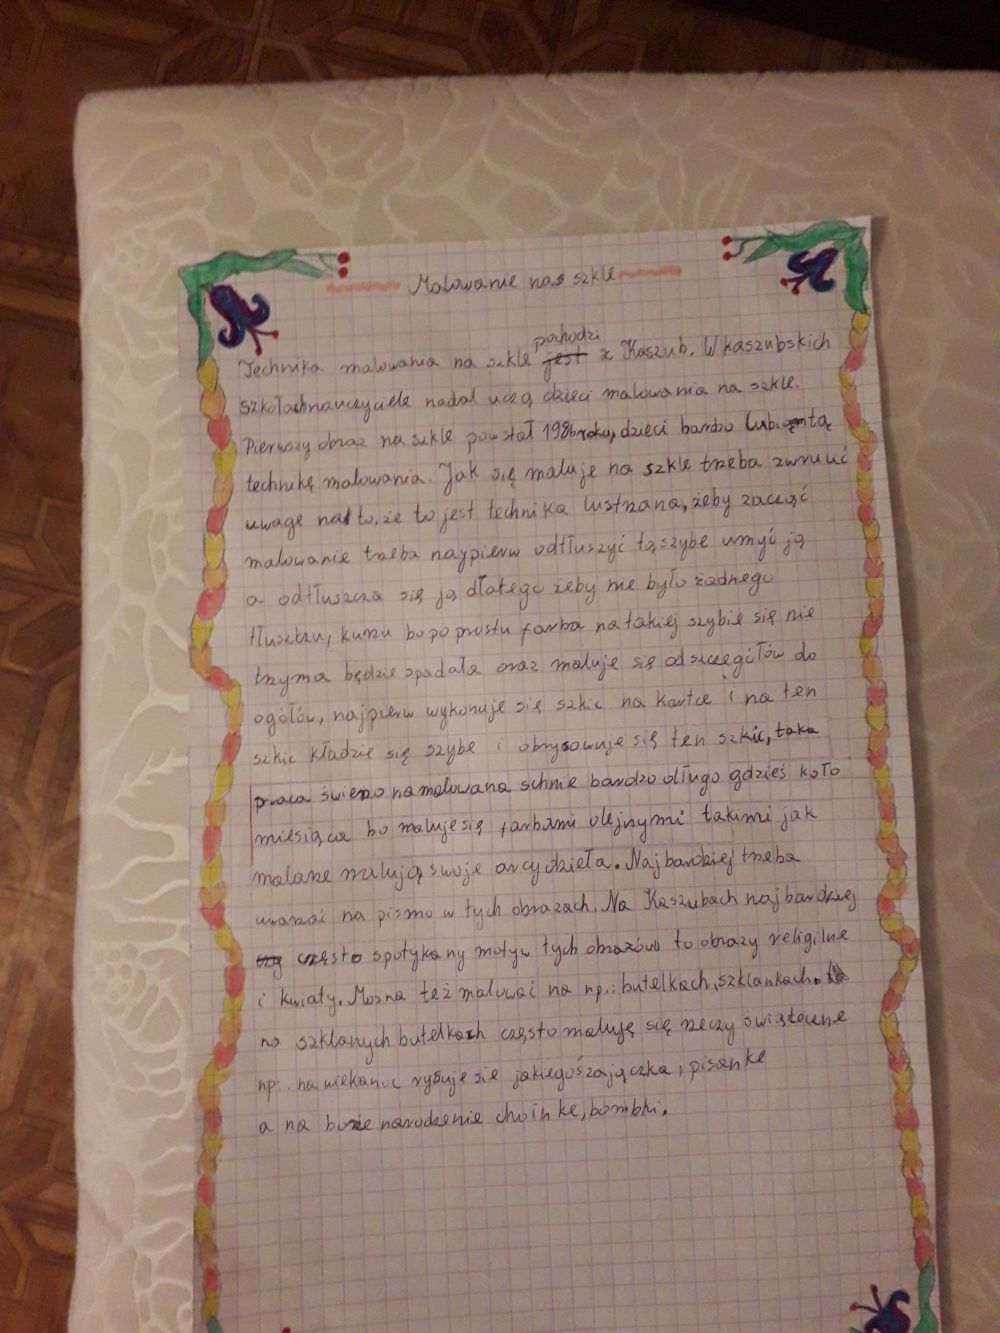 Malowanie na szkle
pochodzi
Technika malowania na szkle jest z Kaszub. W kaszubskich
szkołach nauczyciele nadal uczą dzieci malowania na szkle.
Pierwszy obraz na szkle powstał 1986 roku, dzieci bardzo lubią tą
technikę malowania. Jak się maluje na szkle trzeba zwrucić
uwage na to, że to jest technika lustrzana, żeby zacząć
malowanie trzeba najpierw odtłuszyć tą szybe umyć ją
a odtłuszcza się ją dlatego żeby nie było żadnego
tłuszczu, kurzu bo po prostu farba na takiej szybie się nie
trzyma będzie spadała oraz maluje się od szczegółów do
ogółów, najpierw wykonuje się szkic na kartce i na ten
szkic kładzie się szybe i obrysowuje się ten szkic, taka
praca świeżo namalowana schnie bardzo długo gdzieś koło
miesiąca bo maluje się farbami olejnymi takimi jak
malarze malują swoje arcydzieła. Najbardziej trzeba
uważać na pismo w tych obrazach. Na Kaszubach najbardziej
często spotykany motyw tych obrazów to obrazy religilne
i kwiaty. Można też malować na np.: butelkach, szklankach.
na szklanych butelkach często maluję się rzeczy świąteczne
np.: na wiekanoc rysuje się jakiegoś zajączka, pisanke
a na boże narodzenie choinke, bombki.